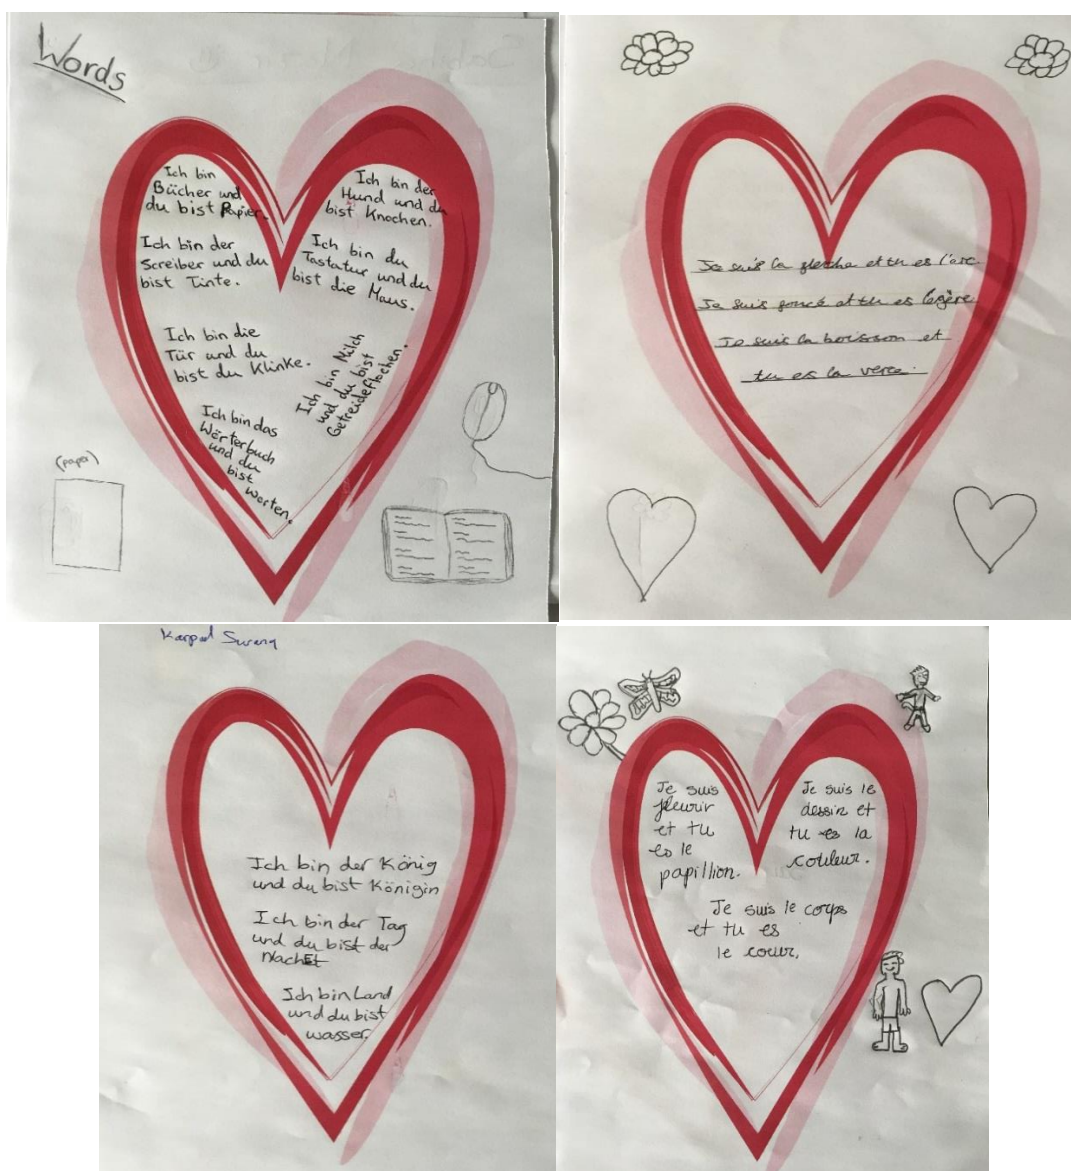 Words
Ich bin
Bücher und
du bist Papier.
Ich bin der
Hund und du
bist Knochen.
Ich bin der
Screiber und du
bist Tinte.
Ich bin du
Tastatur und du
bist die Maus.
Ich bin die
Tür und du
bist du Klinke.
Ich bin Milch
und du bist
Getreideflochen.
Ich bin das
Wörterbuch
und du
bist
Worten.
(paper)
Je suis la fleche et tu es l'arc.
Je suis foncé et tu es légère
Je suis la boisson et
tu es la verre.
Karpal
Ich bin der König
und du bist Königin
Ich bin der Tag
und du bist der
Ich bin Land
und du bist
wasser.
Je suis
fleurir
et tu
es le
papillion.
Je suis le
dessin et
tu es la
couleur.
Je suis le corps
et tu es
le coeur,